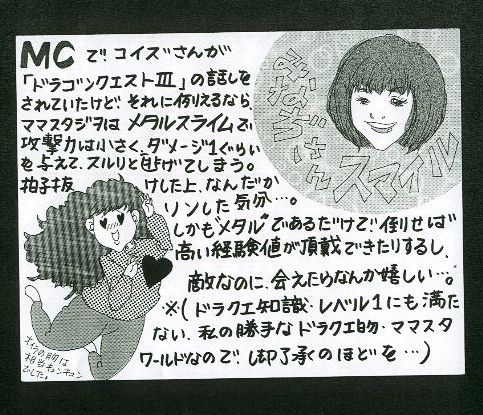 MCで、コイズさんが
「ドラゴンクエストⅢ」の話しを
されていたけど、それに例えるなら
ママスタジヲはメタルスライムで
攻撃力は小さく、ダメージ1ぐらい
を与えて、スルリと逃げてしまう。
拍子抜けした上、なんだか
リンした気分…。
しかも“メタル”であるだけで、倒せば
高い経験値が頂戴できたりするし、
敵なのに、会えたらなんか嬉しい…。
※(ドラクエ知識・レベル1にも満た
ない、私の勝手なドラクエ的・ママスタ
ワールドなので、ご了承のほどを…)
さん
スマイル
の胸は
相当キュンキュン
でした。